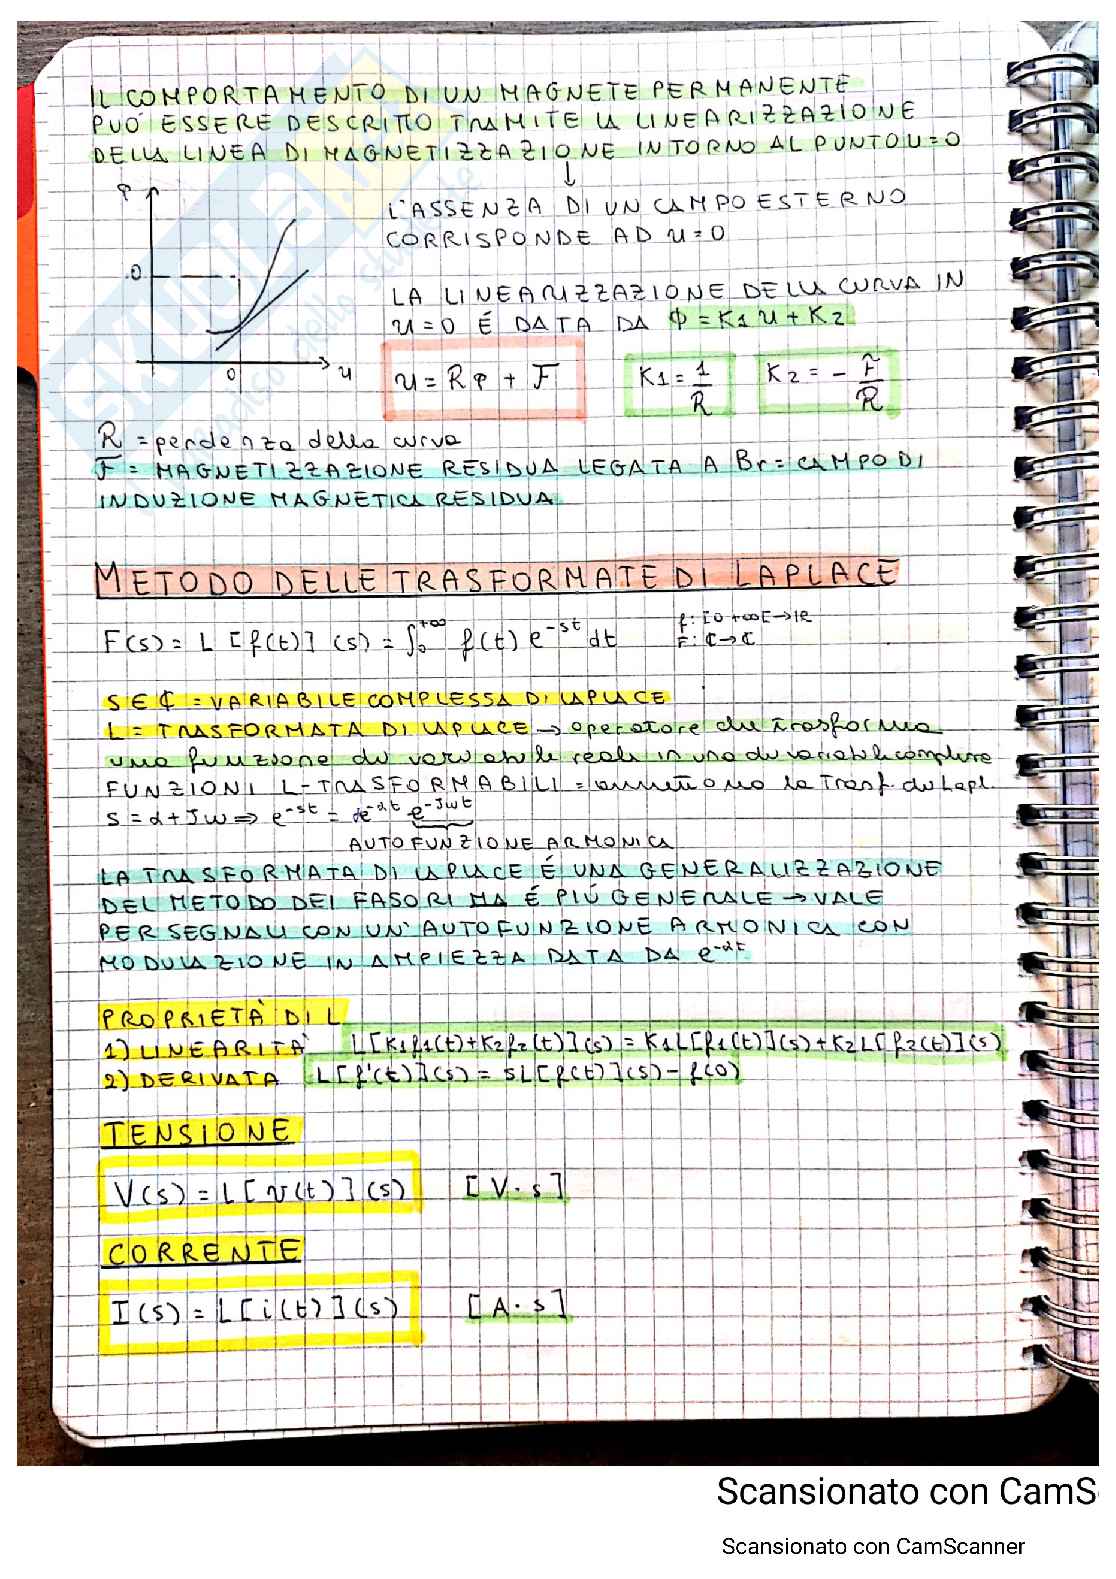 IL COMPORTAMENTO DI UN MAGNETE PERMANENTE
PUO' ESSERE DESCRITTO TRAMITE LA LINEARIZZAZIONE
DELLA LINEA DI MAGNETIZZAZIONE INTORNO AL PUNTO U=0
↓
L'ASSENZA DI UN CAMPO ESTERNO
CORRISPONDE AD u=0
φ
0
0
u
LA LINEARIZZAZIONE DELLA CURVA IN
u=0 É DATA DA ϕ=K1 u+K2
u=Rφ+F
K1=1/R
K2=-F/R
R = pendenza della curva
F = MAGNETIZZAZIONE RESIDUA LEGATA A Br = CAMPO DI
INDUZIONE MAGNETICA RESIDUA
METODO DELLE TRASFORMATE DI LAPLACE
F(s) = L [f(t)] (s) = ∫₀^+∞ f(t) e^-st dt
f: [0 +∞[→IR
F: ℂ→ℂ
S∈ℂ = VARIABILE COMPLESSA DI LAPLACE
L = TRASFORMATA DI LAPLACE → operatore che trasforma
una funzione di variabile reale in una di variabile complessa
FUNZIONI L-TRASFORMABILI = ammettono la Trasf. di Lapl.
S = α+Jω ⇒ e^-st = e^-αt e^-Jωt
AUTOFUNZIONE ARMONICA
LA TRASFORMATA DI LAPLACE É UNA GENERALIZZAZIONE
DEL METODO DEI FASORI MA É PIÚ GENERALE → VALE
PER SEGNALI CON UN'AUTOFUNZIONE ARMONICA CON
MODULAZIONE IN AMPIEZZA DATA DA e^-αt
PROPRIETÀ DI L
1) LINEARITÀ L[K1f1(t)+K2f2(t)](s) = K1L[f1(t)](s)+K2L[f2(t)](s)
2) DERIVATA L[f'(t)](s) = sL[f(t)](s)-f(0)
TENSIONE
V(s) = L[v(t)](s) [V·s]
CORRENTE
I(s) = L[i(t)](s) [A·s]
Scansionato con CamS
Scansionato con CamScanner